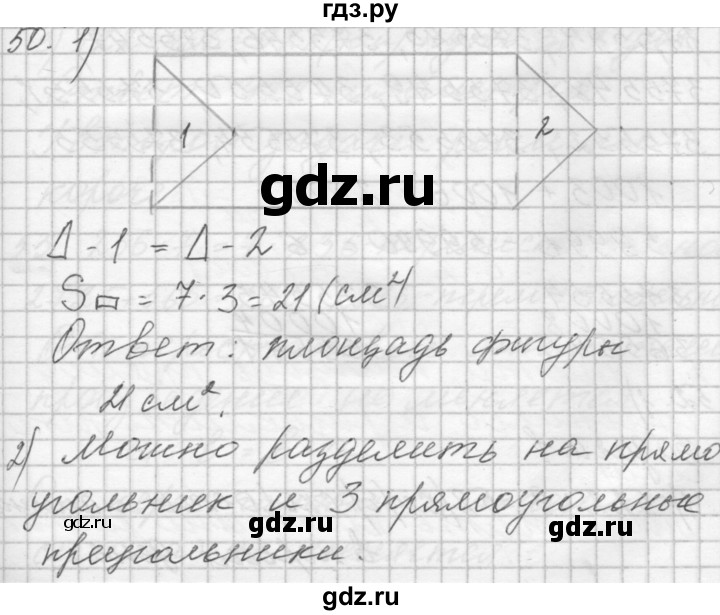 гдз.ру
50. 1)
1 2
gdz.ru
Δ - 1 = Δ - 2
S▭ = 7 · 3 = 21 (см²)
Ответ: площадь фигуры
21 см².
2) Можно разделить на прямо
угольник и 3 прямоугольные
gdz.ru gdz.ru
треугольники.
gdz.ru